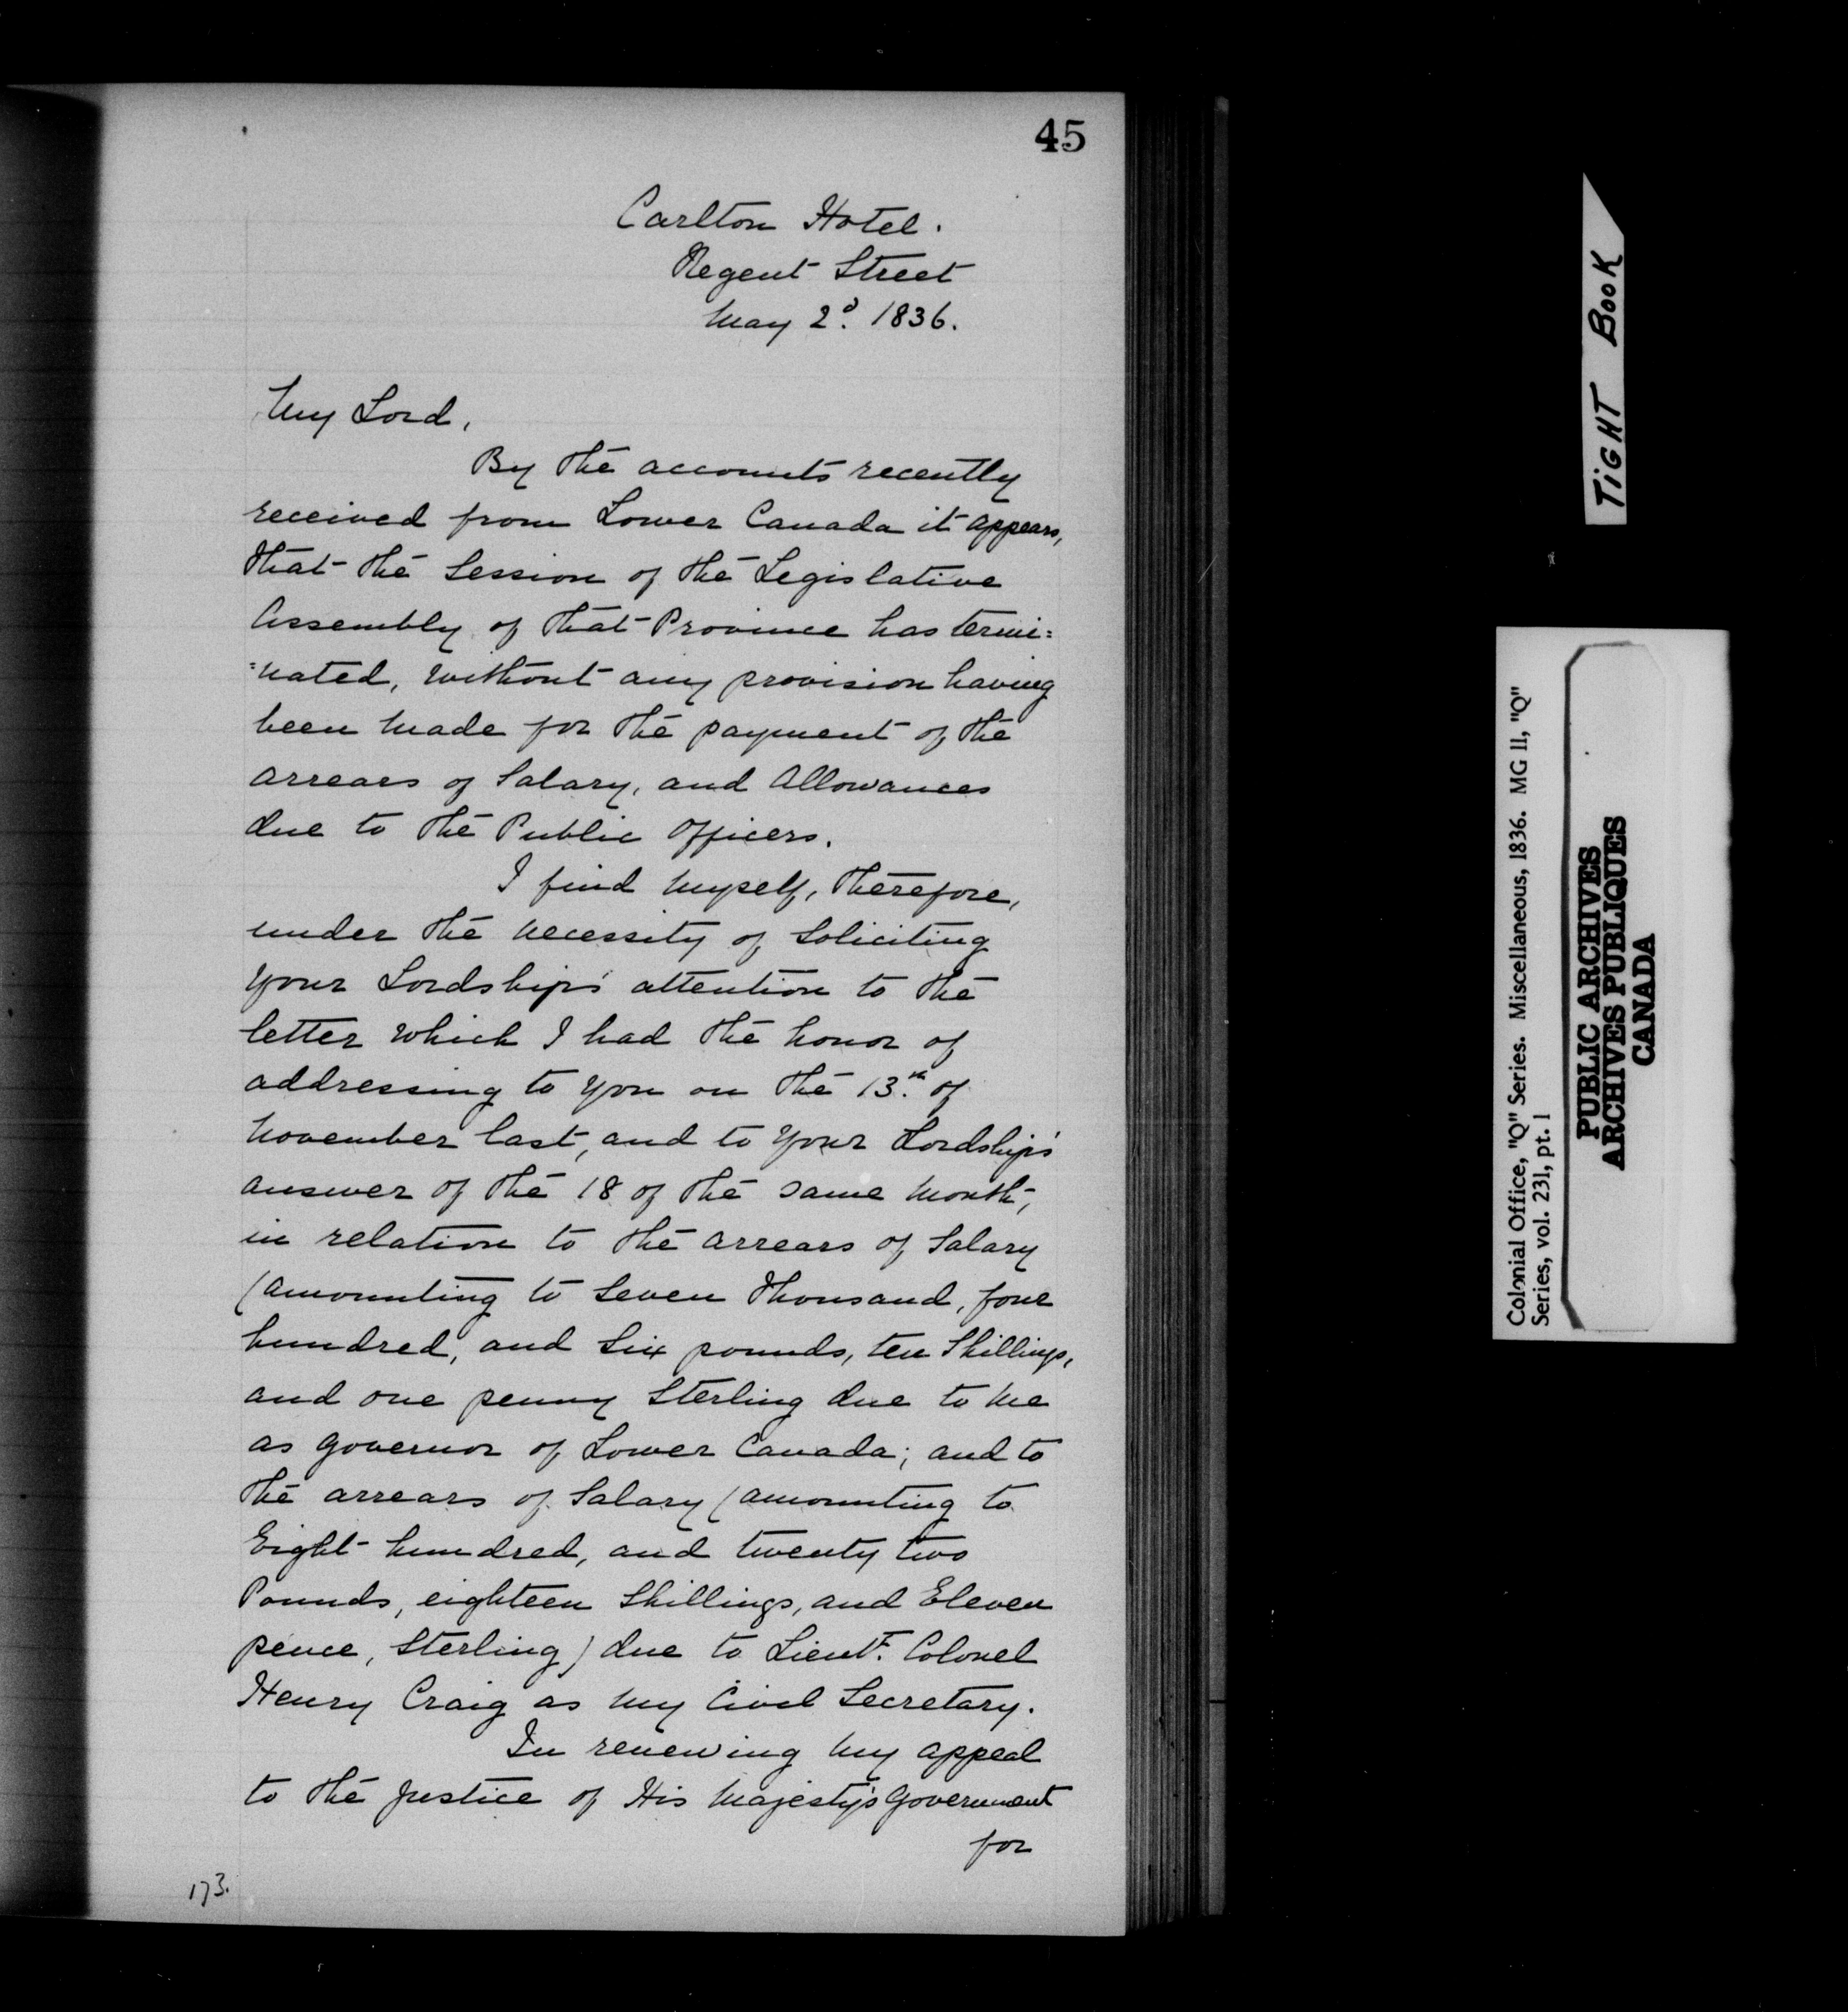 45
Carlton Hotel.
Regent Street
May 2d. 1836.
My Lord,
By the accounts recently
received from Lower Canada it appears,
that the Session of the Legislative
Assembly of that Province has termi=
=nated, without any provision having
been made for the payment of the
arrears of Salary, and Allowances
due to the Public Officers.
I find myself, therefore,
under the necessity of soliciting
your Lordship's attention to the
letter which I had the honor of
addressing to you on the 13.th of
November last, and to Your Lordship's
answer of the 18 of the same month,
in relation to the arrears of Salary
(amounting to Seven Thousand, four
hundred, and Six pounds, ten Shillings,
and one penny Sterling due to me
as Governor of Lower Canada; and to
the arrears of Salary (amounting to
Eight hundred, and twenty two
Pounds, eighteen Shillings, and Eleven
pence, Sterling) due to Lieut. Colonel
Henry Craig as my Civil Secretary.
In renewing my appeal
to the Justice of His Majesty's Government
for
173.
TIGHT BOOK
Colonial Office, "Q" Series. Miscellaneous, 1836. MG 11, "Q"
Series, vol. 231, pt. 1
PUBLIC ARCHIVES
ARCHIVES PUBLIQUES
CANADA